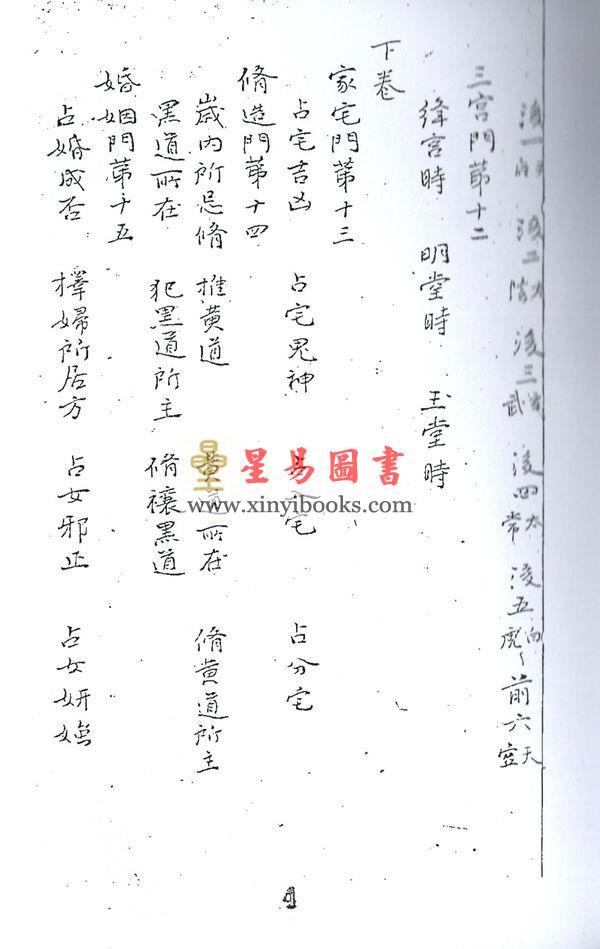 後一天后 後二太陰 後三玄武 後四太常 後五白虎 前六天空
三宮門第十二
絳宮時 明堂時 玉堂時
下卷
家宅門第十三
占宅吉凶 占宅鬼神 宅 占分宅
脩造門第十四
歲內所忌脩 推黃道 黃道所在 脩黃道所主
黑道所在 犯黑道所主 脩禳黑道
婚姻門第十五
占婚成否 擇婦所居方 占女邪正 占女妍媸
星易圖書
www.xinyibooks.com
4